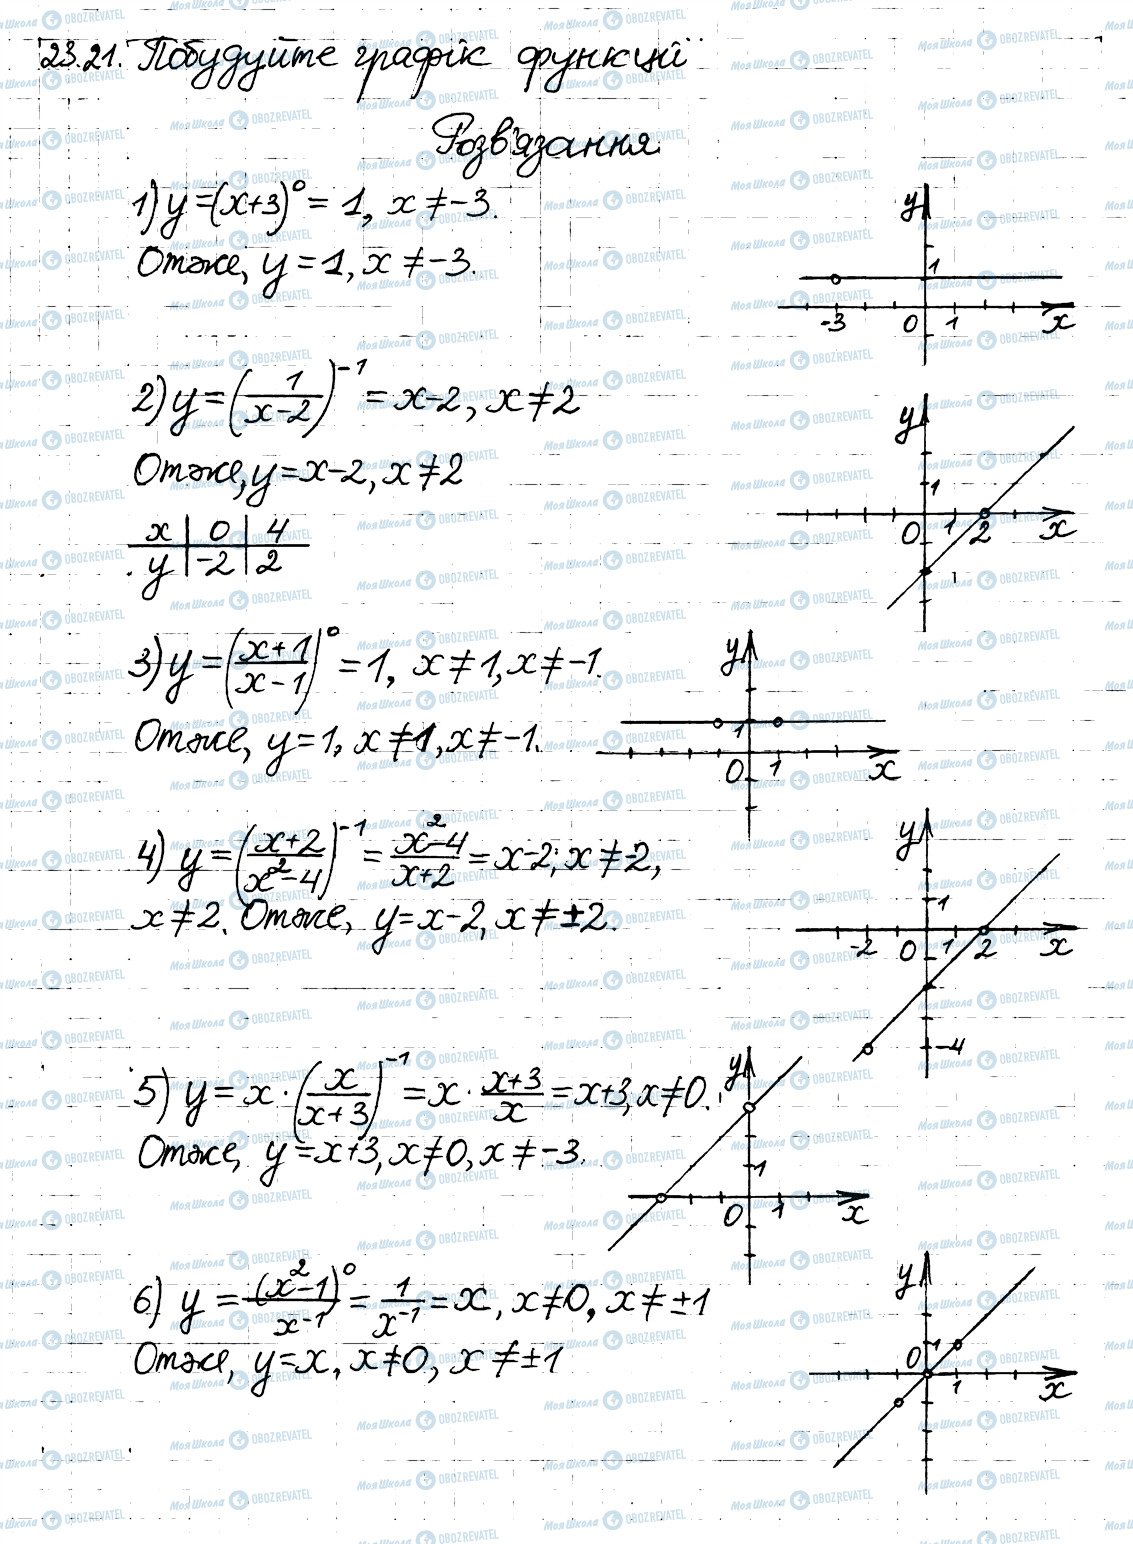 23.21. Побудуйте графік функції
Розв'язання
1) y = (x+3)⁰ = 1, x ≠ -3.
Отже, y = 1, x ≠ -3.
y
1
-3 0 1 x
2) y = (1/(x-2))⁻¹ = x-2, x ≠ 2
Отже, y = x-2, x ≠ 2
x | 0 | 4
y | -2 | 2
y
1
0 1 2 x
3) y = ((x+1)/(x-1))⁰ = 1, x ≠ 1, x ≠ -1.
Отже, y = 1, x ≠ 1, x ≠ -1.
y
1
0 1 x
4) y = ((x+2)/(x²-4))⁻¹ = (x²-4)/(x+2) = x-2; x ≠ -2,
x ≠ 2. Отже, y = x-2, x ≠ ±2.
y
1
-2 0 1 2 x
-4
5) y = x · (x/(x+3))⁻¹ = x · (x+3)/x = x+3, x ≠ 0.
Отже, y = x+3, x ≠ 0, x ≠ -3.
y
1
0 1 x
6) y = (x²-1)⁰/x⁻¹ = 1/x⁻¹ = x, x ≠ 0, x ≠ ±1
Отже, y = x, x ≠ 0, x ≠ ±1
y
0 1
1 x